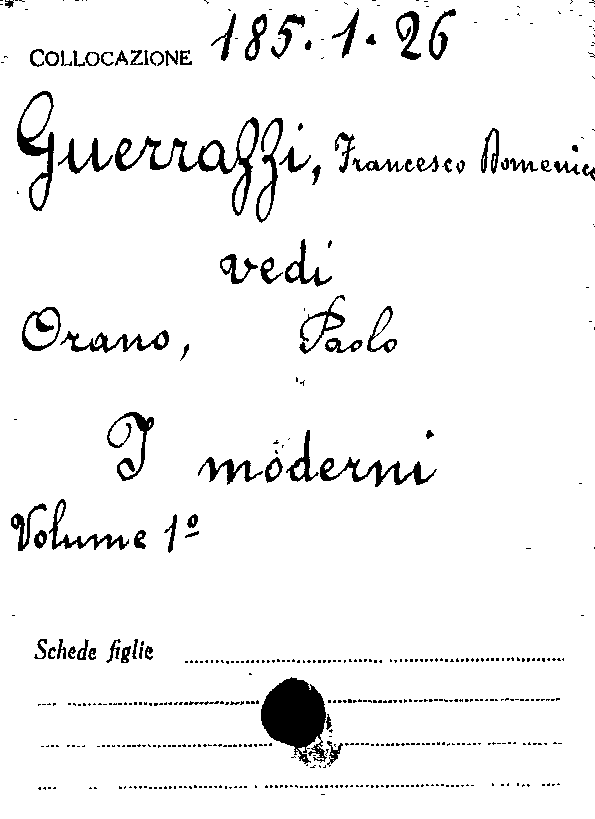 COLLOCAZIONE 185.1.26
Guerrazzi, Francesco Domenico
vedi
Orano, Paolo
I moderni
Volume 1º
Schede figlie